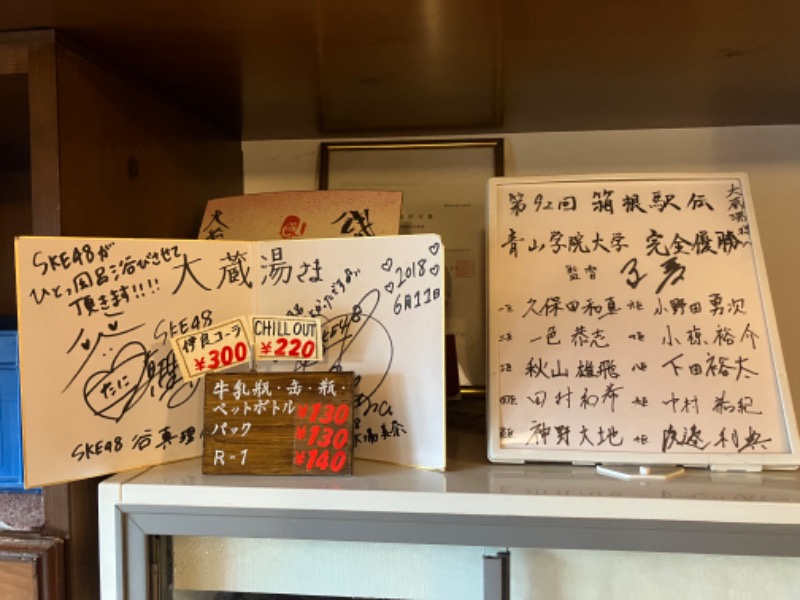 SKE48が
ひとっ風呂浴びさせて
頂き封!!!!
大蔵湯さま
2018
6月11日
SKE48
たに
SKE48
SKE48 谷真理
伊良コーラ
¥300
CHILL OUT
¥220
牛乳瓶・缶・瓶・
ペットボトル ¥130
パック ¥130
R-1 ¥140
大蔵湯様
第92回 箱根駅伝
青山学院大学 完全優勝
監督
久保田和真 小野田勇次
一色恭志 小椋裕介
秋山雄飛 下田裕太
田村和希 中村祐紀
神野大地 渡邉利典